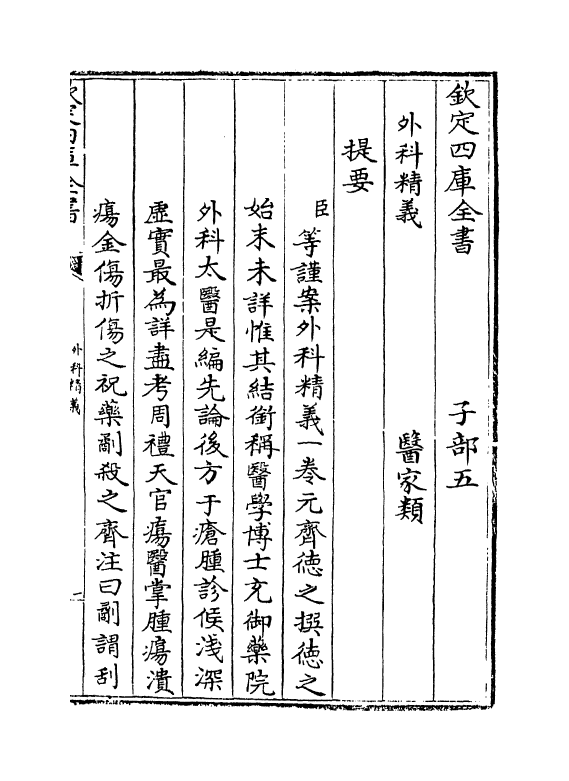 欽定四庫全書 子部五
外科精義 醫家類
提要
臣等謹案外科精義一卷元齊德之撰德之
始末未詳惟其結銜稱醫學博士充御藥院
外科太醫是編先論後方于瘡腫診候淺深
虛實最為詳盡考周禮天官瘍醫掌腫瘍潰
瘍金傷折傷之祝藥劀殺之齊注曰劀謂刮
欽定四庫全書
外科精義
一